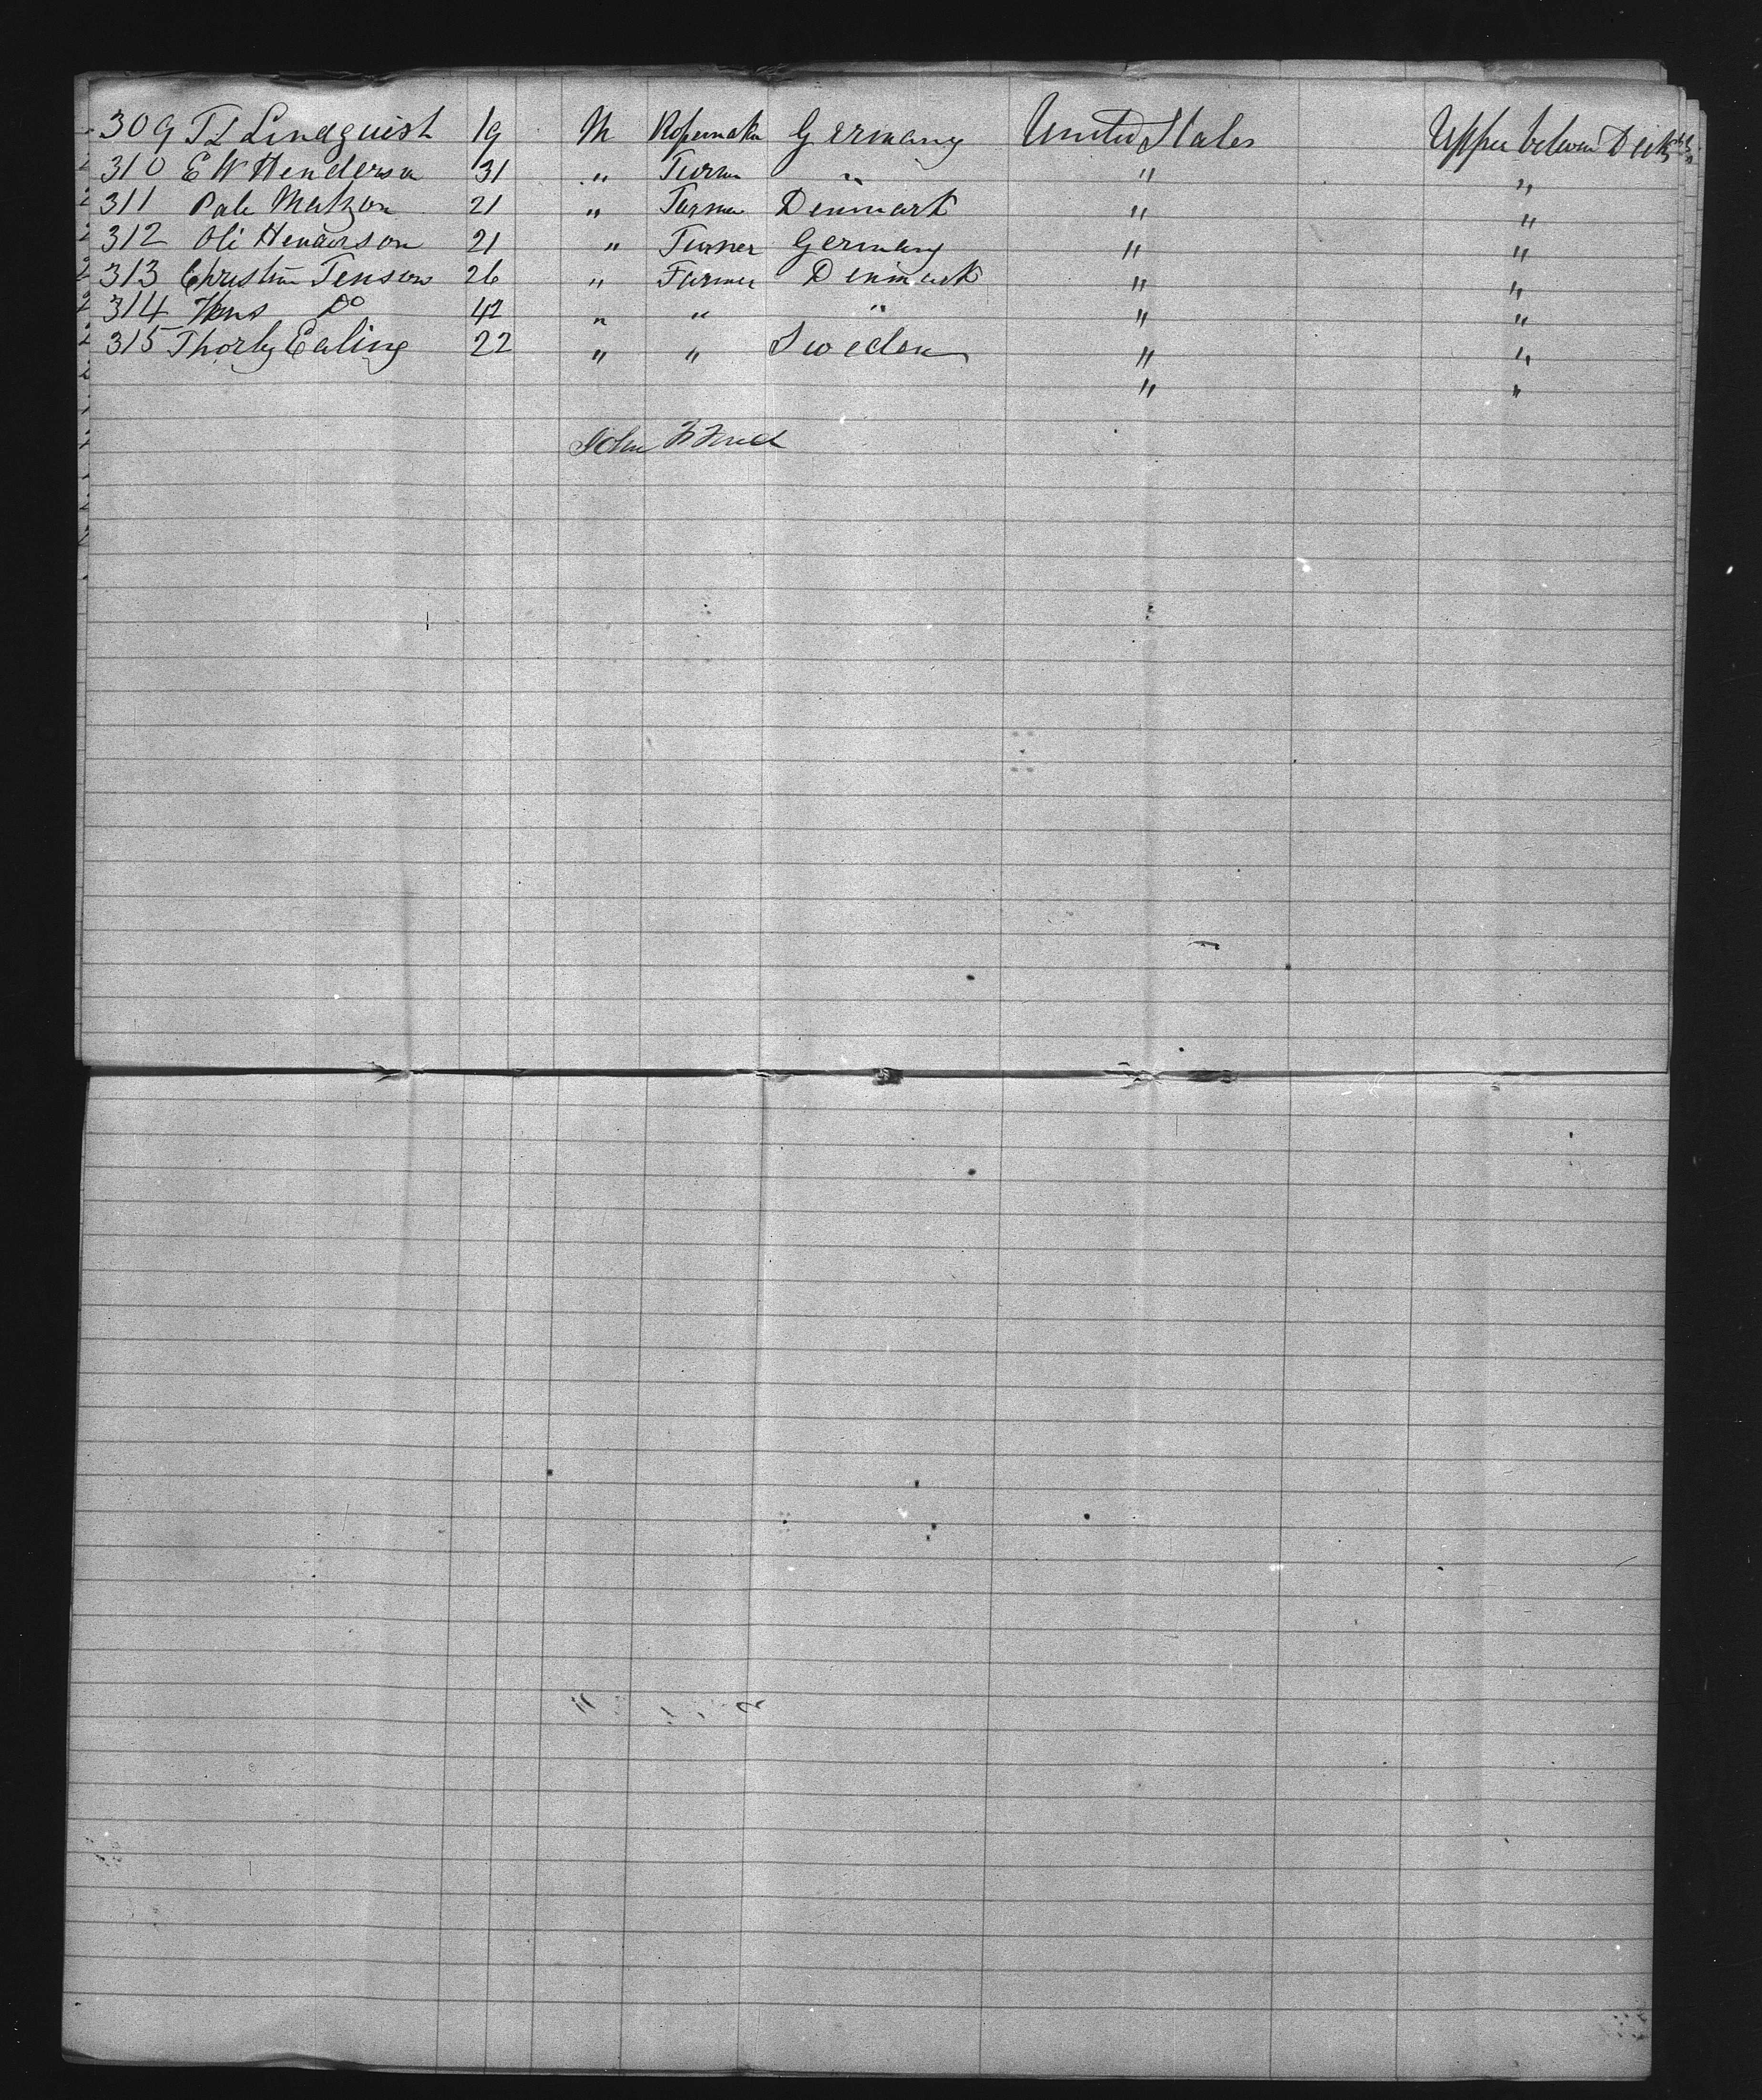 309 TL Lindquish 19 M Ropemaker Germany United States Upper between Decks
310 E W Henderson 31 " Turner " " "
311 Pale Matson 21 " Farmer Denmark " "
312 Oli Henderson 21 " Turner Germany " "
313 Christian Jenson 26 " Farmer Denmark " "
314 Hans Do 42 " " " " "
315 Thorly Ealing 22 " " Sweden " "
" "
John